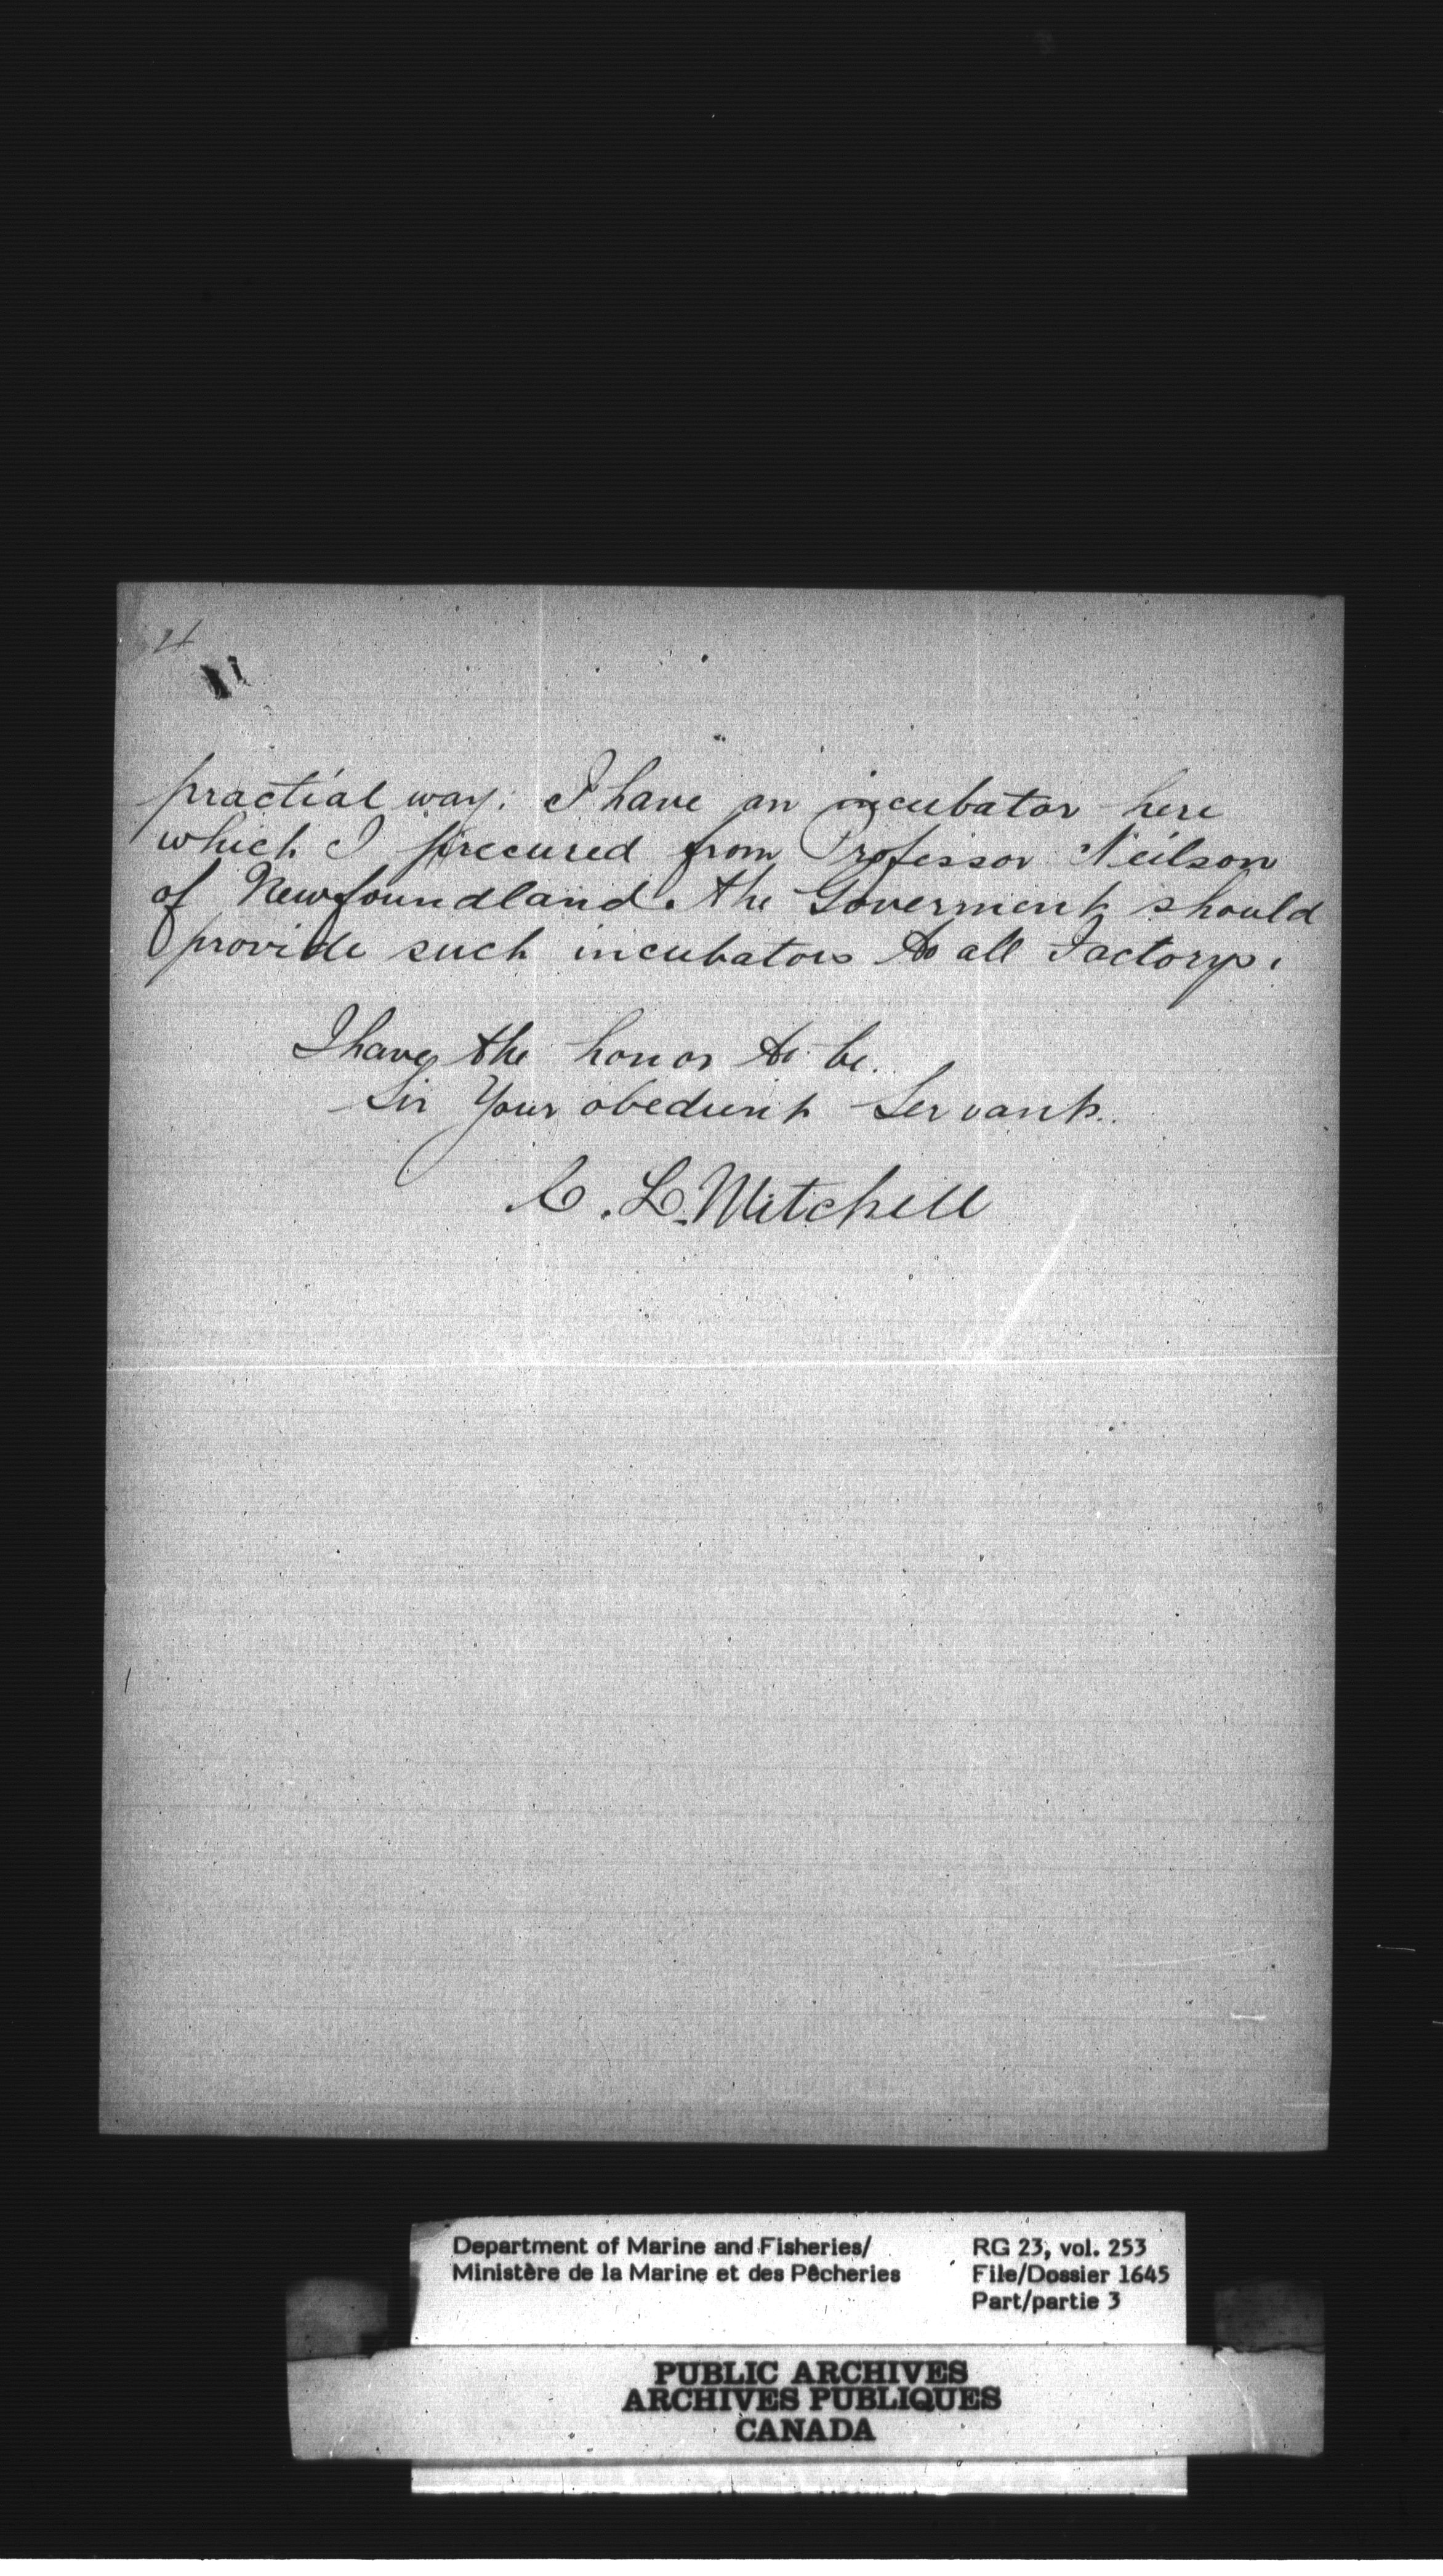 4
practial way. I have an incubator here
which I precured from Professor Neilson
of Newfoundland. the Goverment should
provide such incubators to all Factorys.
I have the honor to be.
Sir Your obedient Servant.
C. L. Mitchell
Department of Marine and Fisheries/
Ministère de la Marine et des Pêcheries
RG 23, vol. 253
File/Dossier 1645
Part/partie 3
PUBLIC ARCHIVES
ARCHIVES PUBLIQUES
CANADA